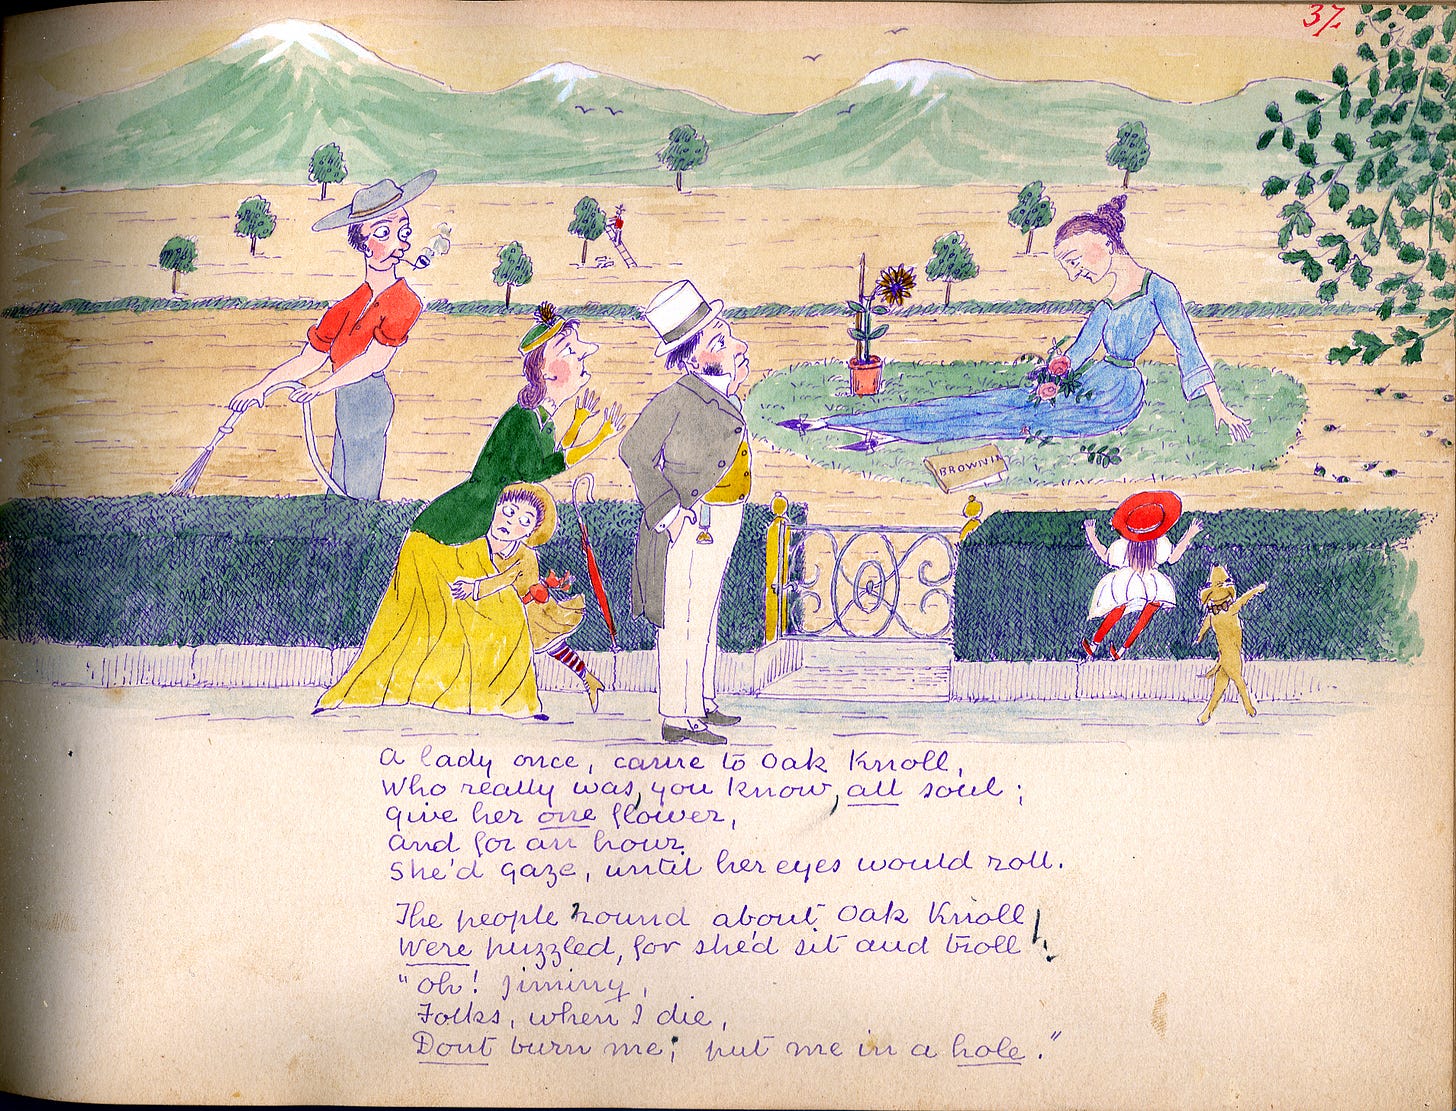 37.
BROWNIN
A lady once, came to Oak Knoll,
Who really was, you know, all soul;
give her one flower,
And for an hour
She'd gaze, until her eyes would roll.
The people 'round about Oak Knoll,
Were puzzled, for she'd sit and troll
"Oh! Jiminy,
Folks, when I die,
Dont burn me; put me in a hole."